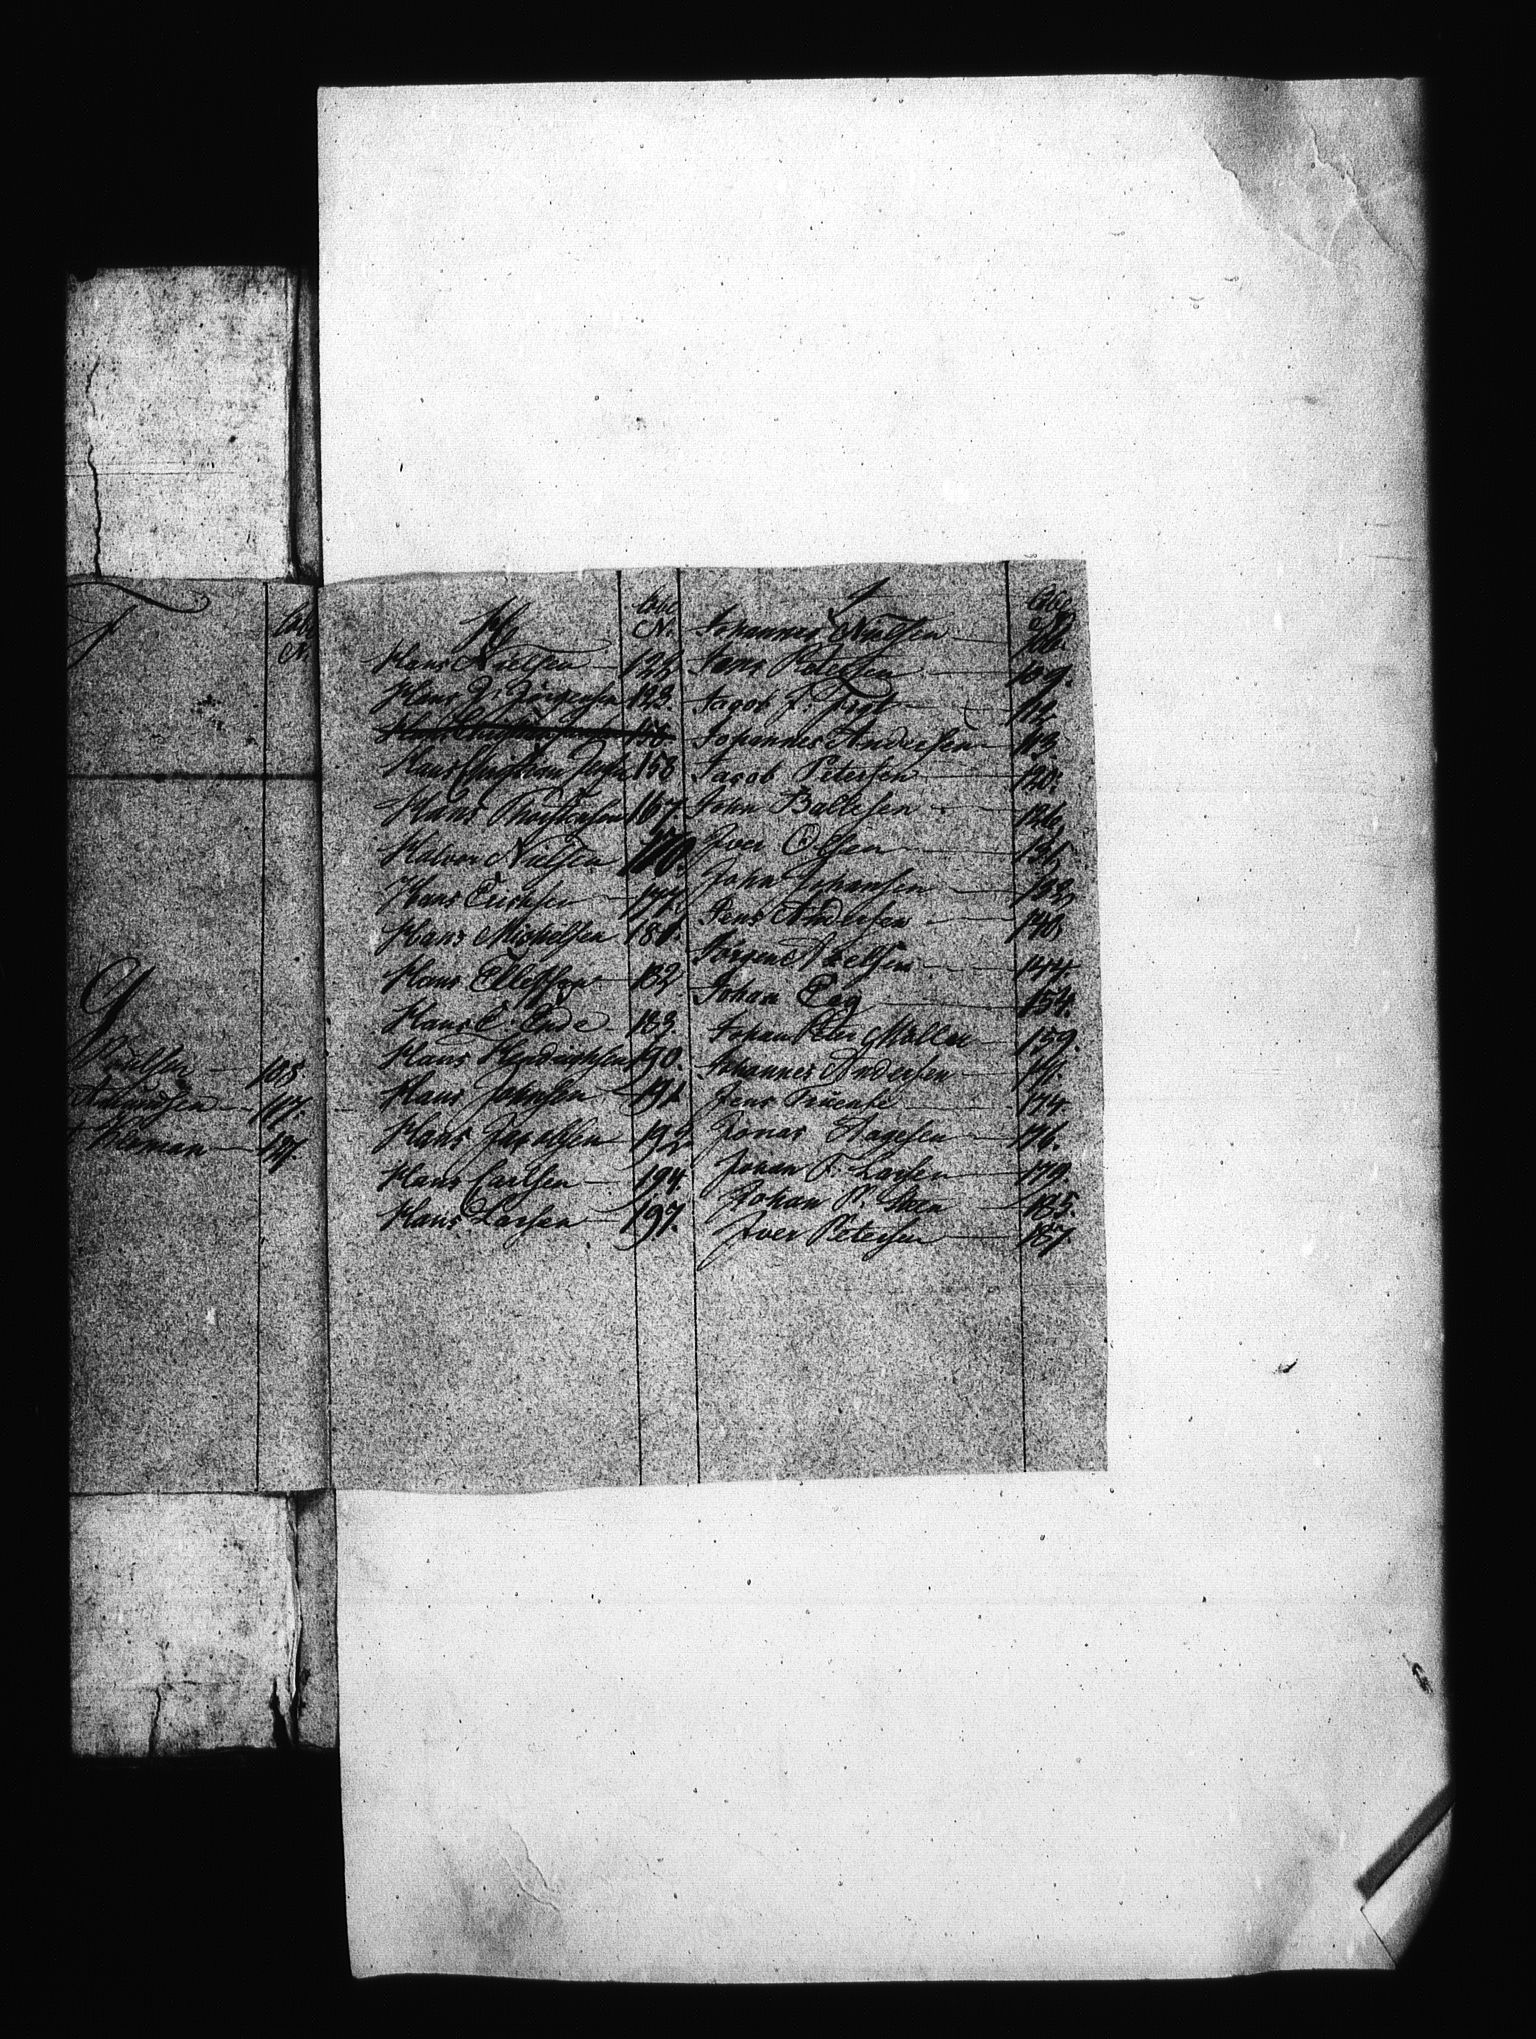 F
N.
G
Nielsen 105.
Amundsen 117.
Nieman 121.
H
N.
Hans Nielsen 122
Hans J. Jörgensen 123.
Hans Christian 158
Hans Thorstensen 167.
Halvor Nielsen 170.
Hans Erichsen 177.
Hans Michelsen 181.
Hans Ellefsen 182
Hans E. Ende 183.
Hans Hendrichsen 190.
Hans Johnsen 191
Hans Jacobsen 192
Hans Carlsen 194.
Hans Larsen 197.
J
No
Johannes Nielsen
Jens Petersen 109.
Jacob J. 112
Johannes Andersen 113.
Jacob Petersen 120.
John Baltesen 126
Iver Olsen 131
John Johansen 132
Jens Andersen 140
Jörgen Axelsen 144
Johan Eeg 154.
Johan Peter Möller 159.
Johannes Andersen 171.
Jens 174.
Jonas Aagesen 176.
Johan F. Larsen 179.
Johan P. 185.
Iver Petersen 187.